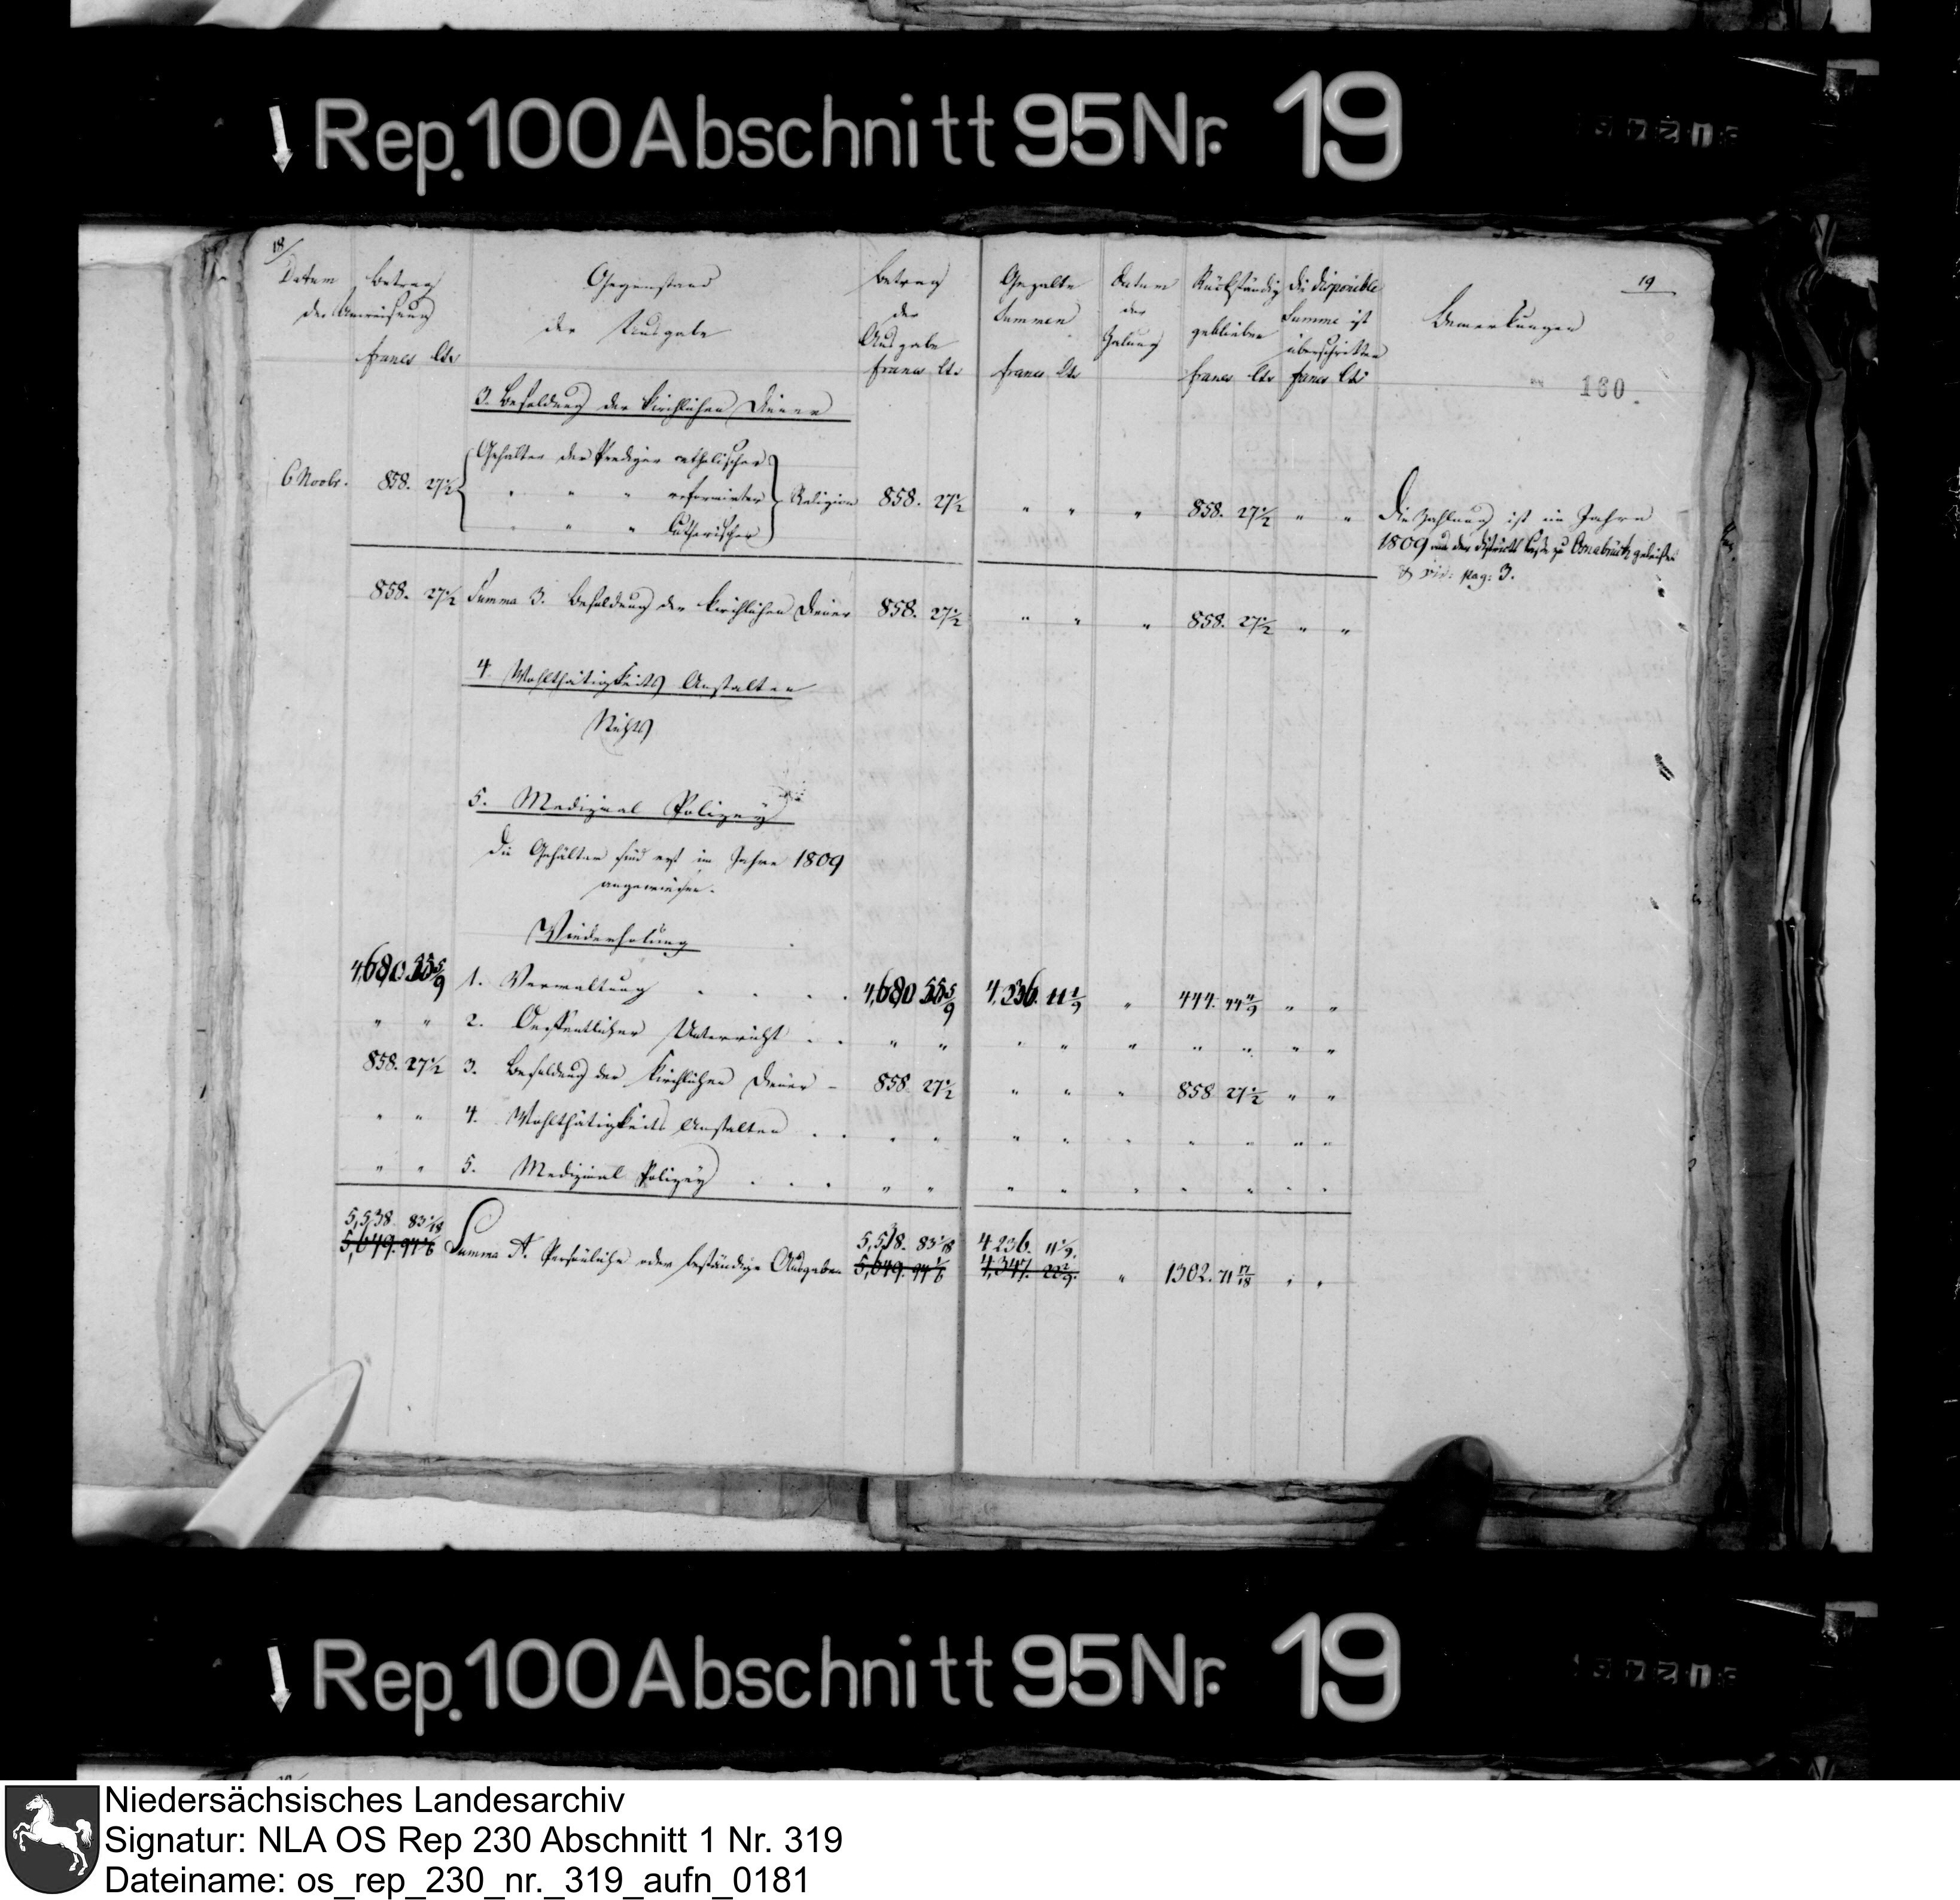 Rep. 100 Abschnitt 95 Nr. 19
18
19
Datum Betrag Gegenstand Betrag Gezalte Datum Rückständig die disponible Bemerkungen
der Anweisung der Ausgabe der Ausgabe Summen der Zalung geblieben Summe ist überschritten
francs Cts francs Cts francs Cts francs Cts francs Cts
160.
3. Besoldung der kirchlichen Diener
Gehalter der Prediger catholischer
6 Novbr. 858. 27 1/2 " " " reformirter Religion 858. 27 1/2 " " " 858. 27 1/2 " " Die Zahlung ist im Jahre
" " " Lutherischer 1809 aus der District Casse zu Osnabrück geleistet
vid: pag: 3.
858. 27 1/2 Summa 3. Besoldung der kirchlichen Diener 858. 27 1/2 " " " 858. 27 1/2 " "
4. Wohlthätigkeits Anstalten
Nichts
5. Medizinal Polizey
Die Gehälter sind erst im Jahre 1809
angewiesen.
Wiederholung
4,680 55 5/9 1. Verwaltung . . . . 4,680 55 5/9 4,236. 11 1/9 " 444. 44 4/9 " "
" " 2. Oeffentlicher Unterricht . . " " " " " " " " "
858. 27 1/2 3. Besoldung der kirchlichen Diener - 858 27 1/2 " " " 858 27 1/2 " "
" " 4. Wohlthätigkeits Anstalten . . " " " " " " " " "
" " 5. Medizinal Polizey . . . " " " " " " " " "
5,538. 83 1/18 5,538. 83 1/18 4236. 11 1/9.
5,649. 94 1/6 Summa A. Persönliche oder beständige Ausgaben 5,649. 94 1/6 4,347. 22 2/9. " 1302. 71 17/18 " "
Rep. 100 Abschnitt 95 Nr. 19
Niedersächsisches Landesarchiv
Signatur: NLA OS Rep 230 Abschnitt 1 Nr. 319
Dateiname: os_rep_230_nr._319_aufn_0181